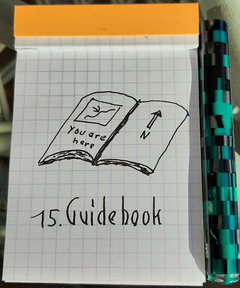 You are
here
N
15. Guidebook